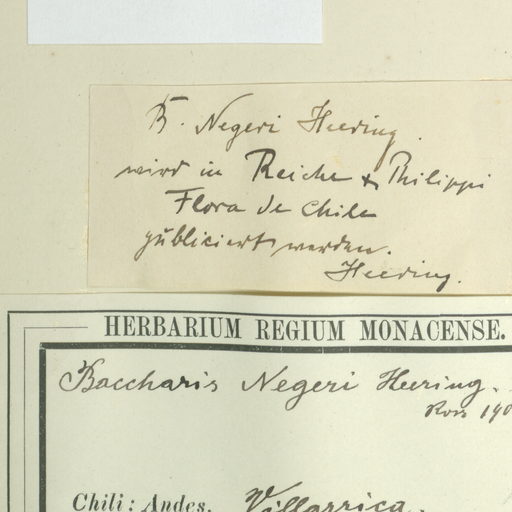 B. Negeri Heering.
wird in Reiche & Philippi
Flora de Chile
publiciert werden.
Heering.
HERBARIUM REGIUM MONACENSE.
Baccharis Negeri Heering.
Chili: Andes. Villarrica.